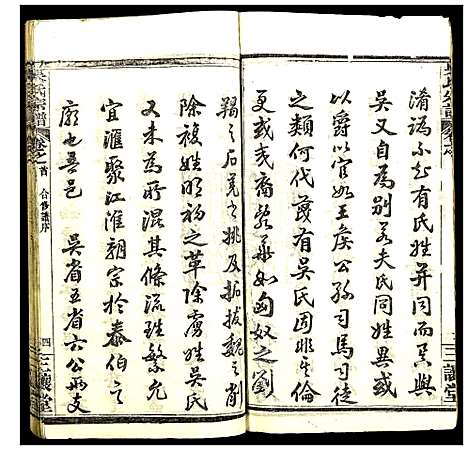 淆譌不知有氏姓并同而吴與
吴又自為别者夫氏同姓異
以爵以官如王侯公孫司馬司徒
之類何代蔑有吴氏固非其倫
更或支裔紫氣如匈奴之劉
羯之石羌之姚及拓拔魏之削
除複姓明初之革除虜姓吴氏
又未為所混其條流雖繁允
宜滙聚江淮朝宗於泰伯之
廟也吾邑　吴省五省六公兩支
吴氏宗譜
卷之首　合修譜序
四
三讓堂